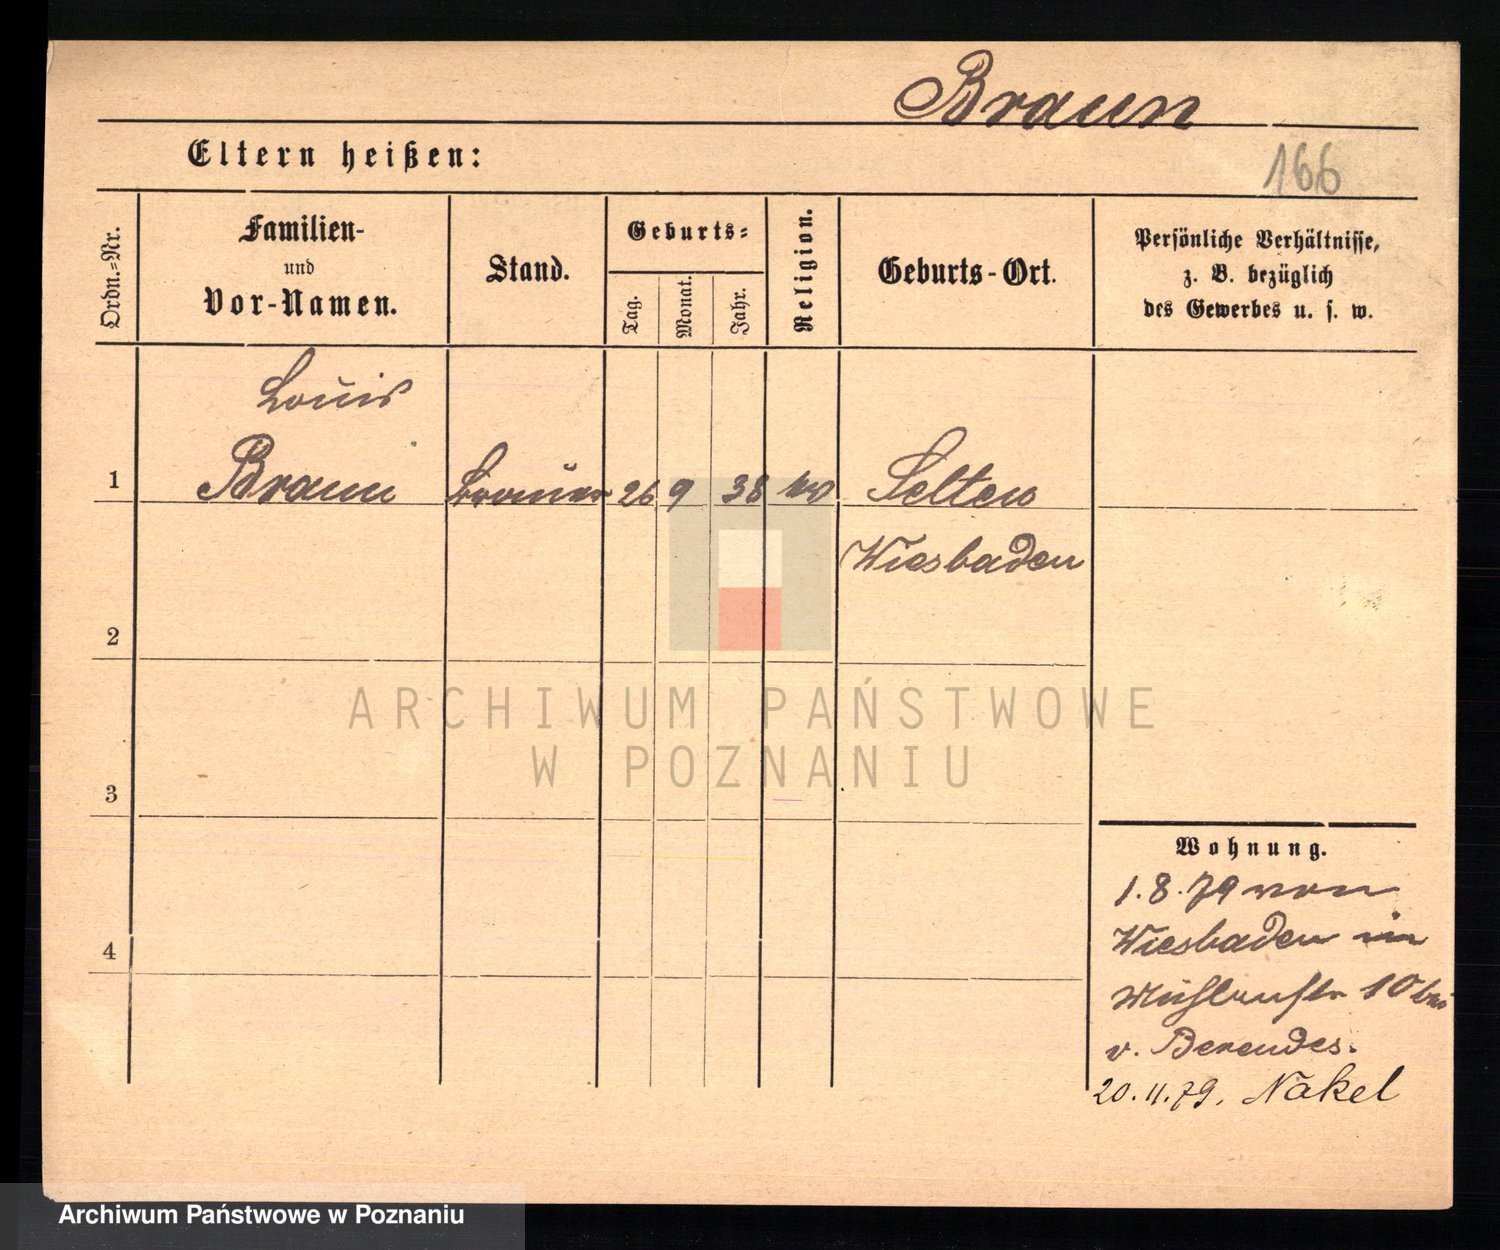 Braun
Eltern heißen:
166
Ordn.-Nr.
Familien-
und
Vor-Namen.
Stand.
Geburts-
Tag.
Monat.
Jahr.
Religion.
Geburts-Ort.
Persönliche Verhältnisse,
z. B. bezüglich
des Gewerbes u. s. w.
Louis
1 Braun Brauer 26 9 38 ev Selters
Wiesbaden
2
ARCHIWUM PAŃSTWOWE
W POZNANIU
3
Wohnung.
1. 8. 79 von
Wiesbaden in
Mühlenstr 10 bei
4
v. Berendes.
20. 11. 79. Nakel
Archiwum Państwowe w Poznaniu